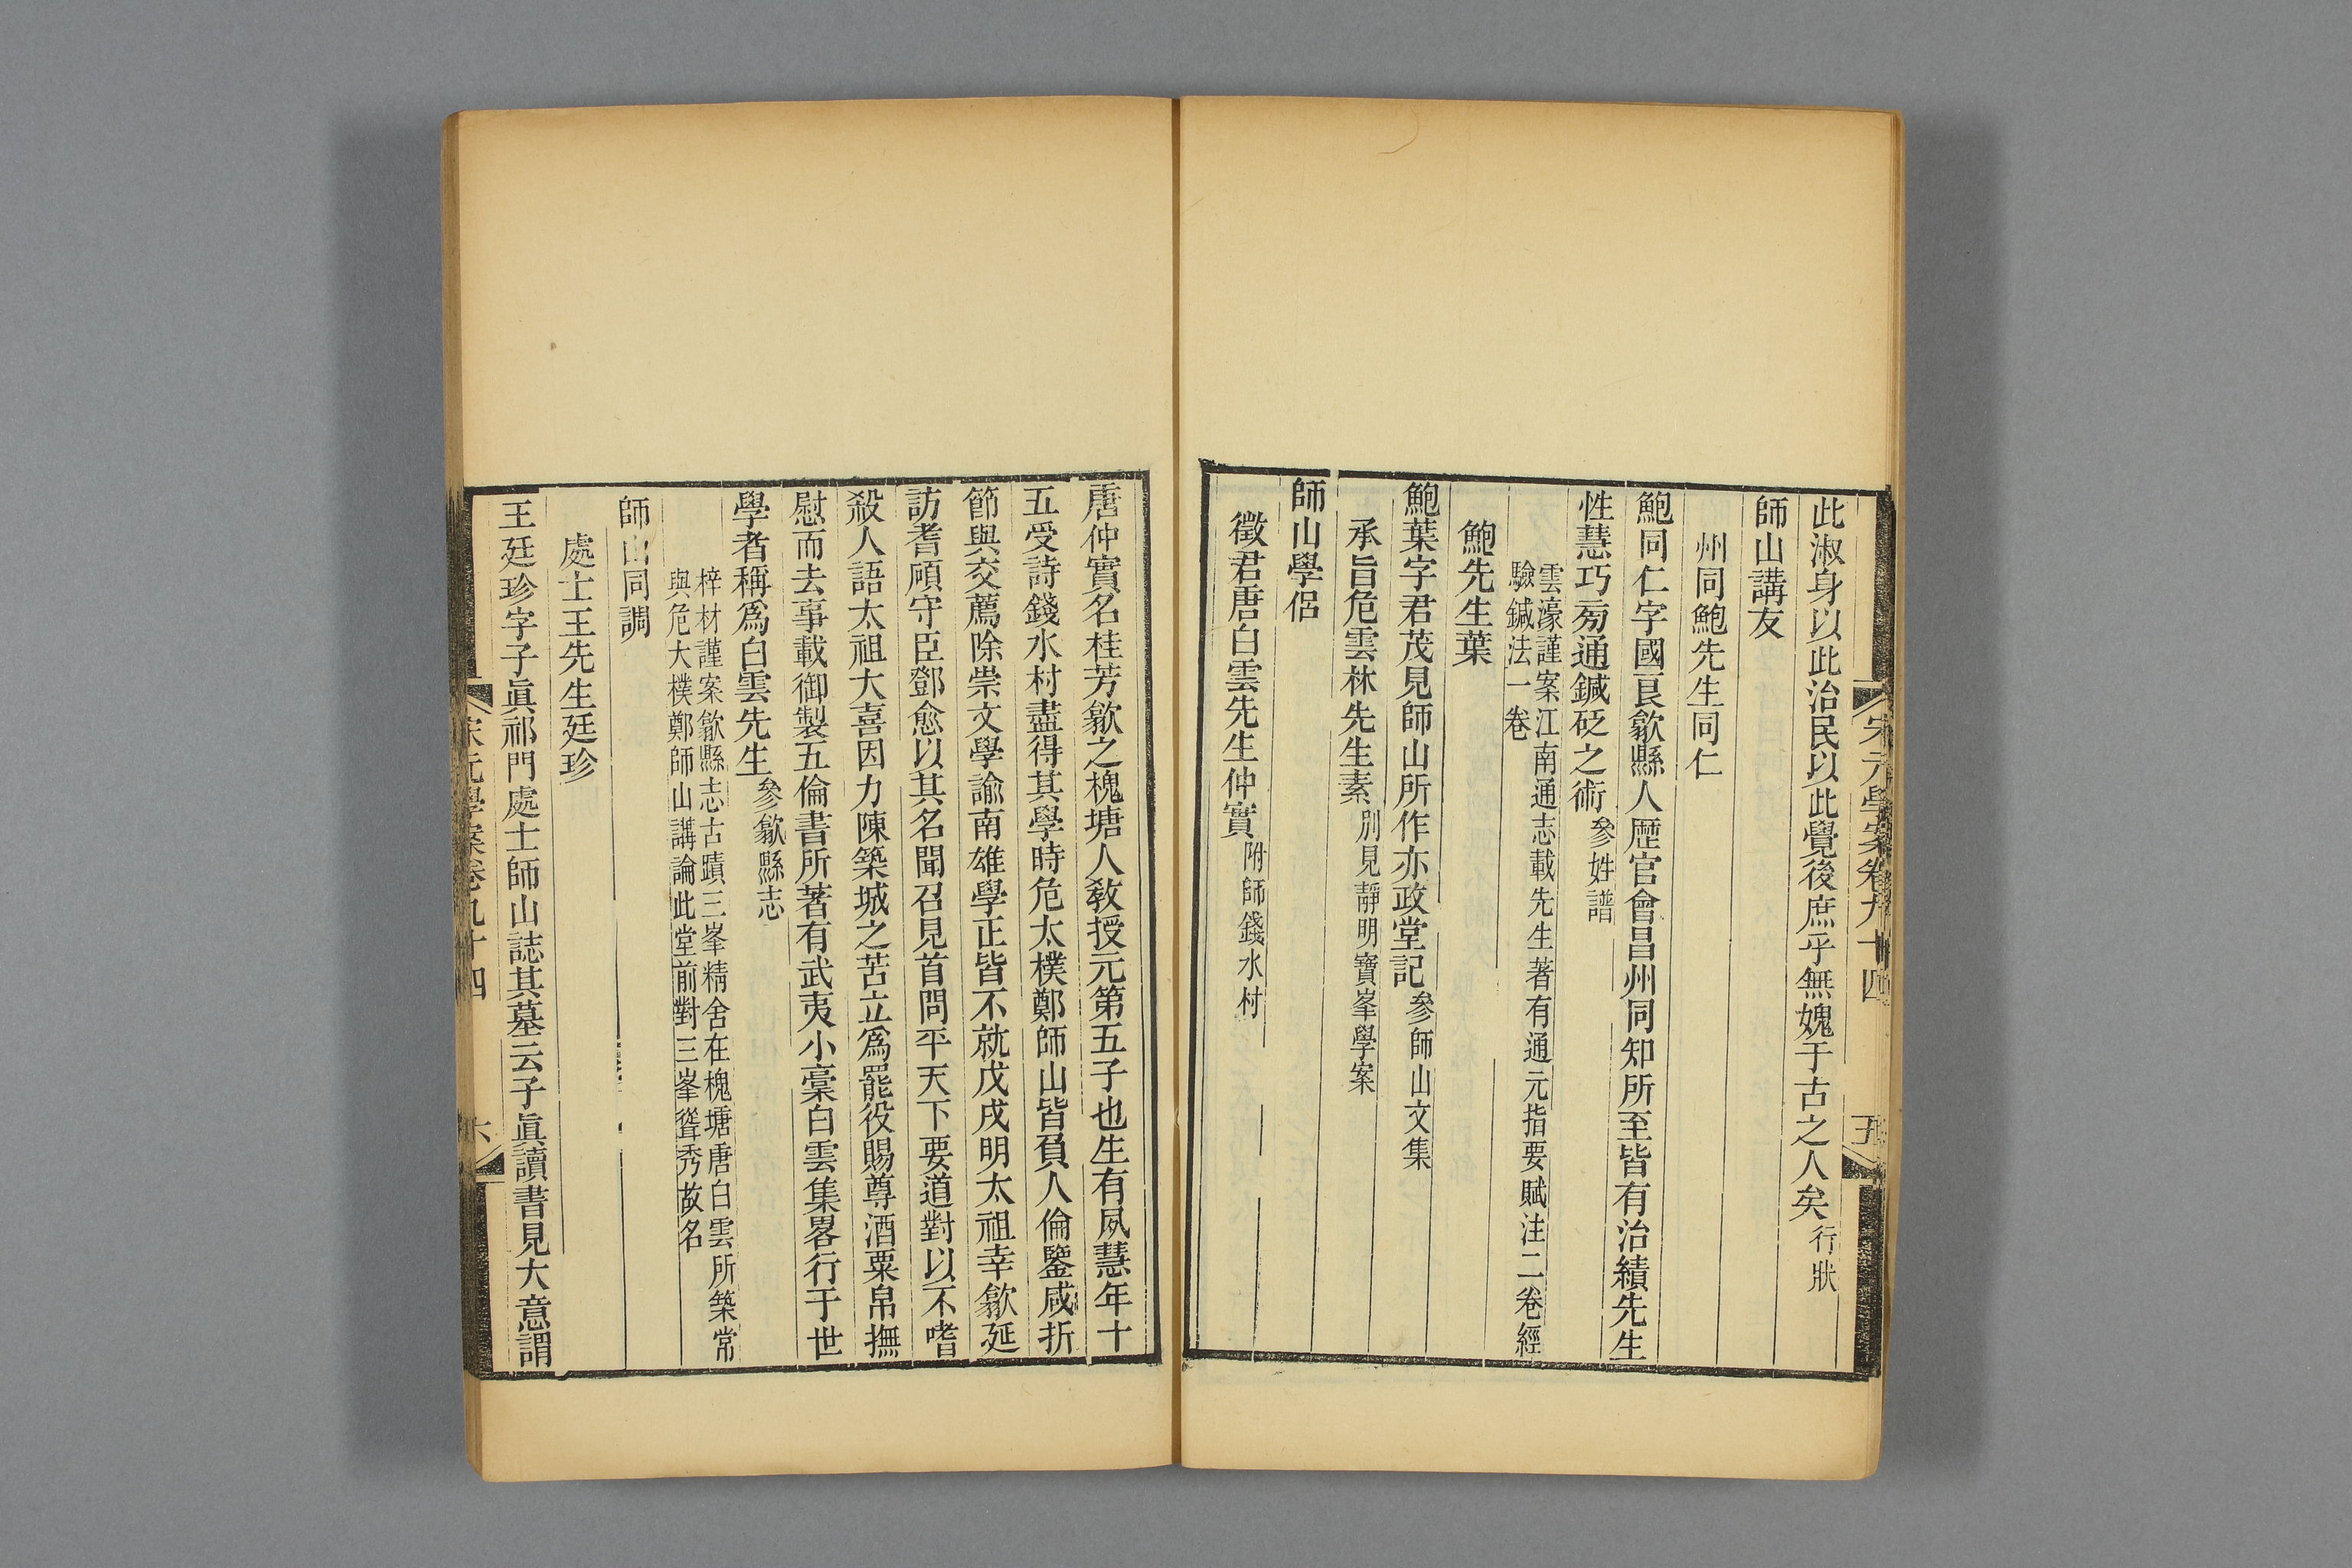 宋元學案卷九十四
五
此淑身以此治民以此覺後庶乎無媿于古之人矣行狀
師山講友
州同鮑先生同仁
鮑同仁字國良歙縣人歷官會昌州同知所至皆有治績先生
性慧巧㫄通鍼砭之術參姓譜
雲濠謹案江南通志載先生著有通元指要賦注二卷經
驗鍼法一卷
鮑先生葉
鮑葉字君茂見師山所作亦政堂記參師山文集
承旨危雲林先生素別見靜明寶峯學案
師山學侶
徵君唐白雲先生仲實附師錢水村
唐仲實名桂芳歙之槐塘人敎授元第五子也生有夙慧年十
五受詩錢水村盡得其學時危太樸鄭師山皆負人倫鑒咸折
節與交薦除崇文學諭南雄學正皆不就戊戌明太祖幸歙延
訪耆碩守臣鄧愈以其名聞召見首問平天下要道對以不嗜
殺人語太祖大喜因力陳築城之苦立爲罷役賜尊酒粟帛撫
慰而去事載御製五倫書所著有武夷小稾白雲集畧行于世
學者稱爲白雲先生參歙縣志
梓材謹案歙縣志古蹟三峯精舍在槐塘唐白雲所築常
與危大樸鄭師山講論此堂前對三峯聳秀故名
師山同調
處士王先生廷珍
王廷珍字子眞祁門處士師山誌其墓云子眞讀書見大意謂
宋元學案卷九十四
六